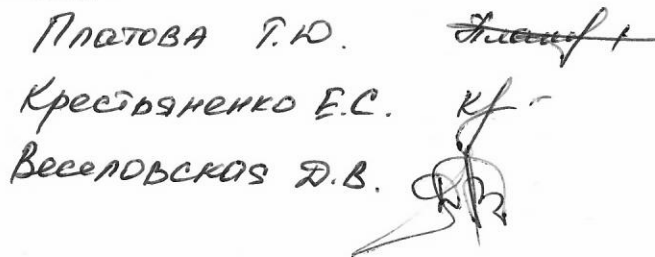 Платова Т.Ю.
Крестьяненко Е.С.
Веселовская Д.В.